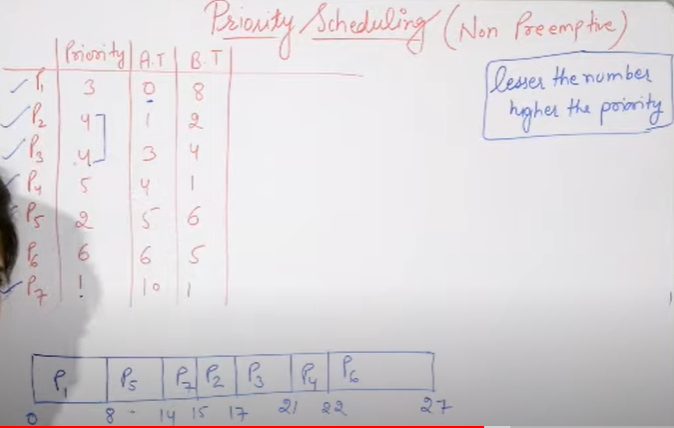 Priority Scheduling (Non Preemptive)
Priority A.T B.T
P1 3 0 8
P2 4 1 2
P3 4 3 4
P4 5 4 1
P5 2 5 6
P6 6 6 5
P7 1 10 1
lesser the number
higher the priority
P1 P5 P7 P2 P3 P4 P6
0 8 14 15 17 21 22 27